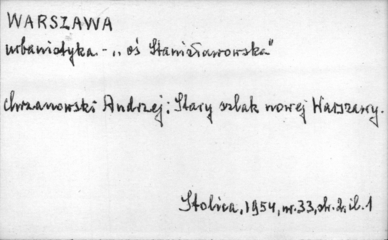 WARSZAWA
urbanistyka - "oś Stanisławowska"
Chrzanowski Andrzej: Stary szlak nowej Warszawy.
Stolica, 1954, nr. 33, str. 2, il. 1